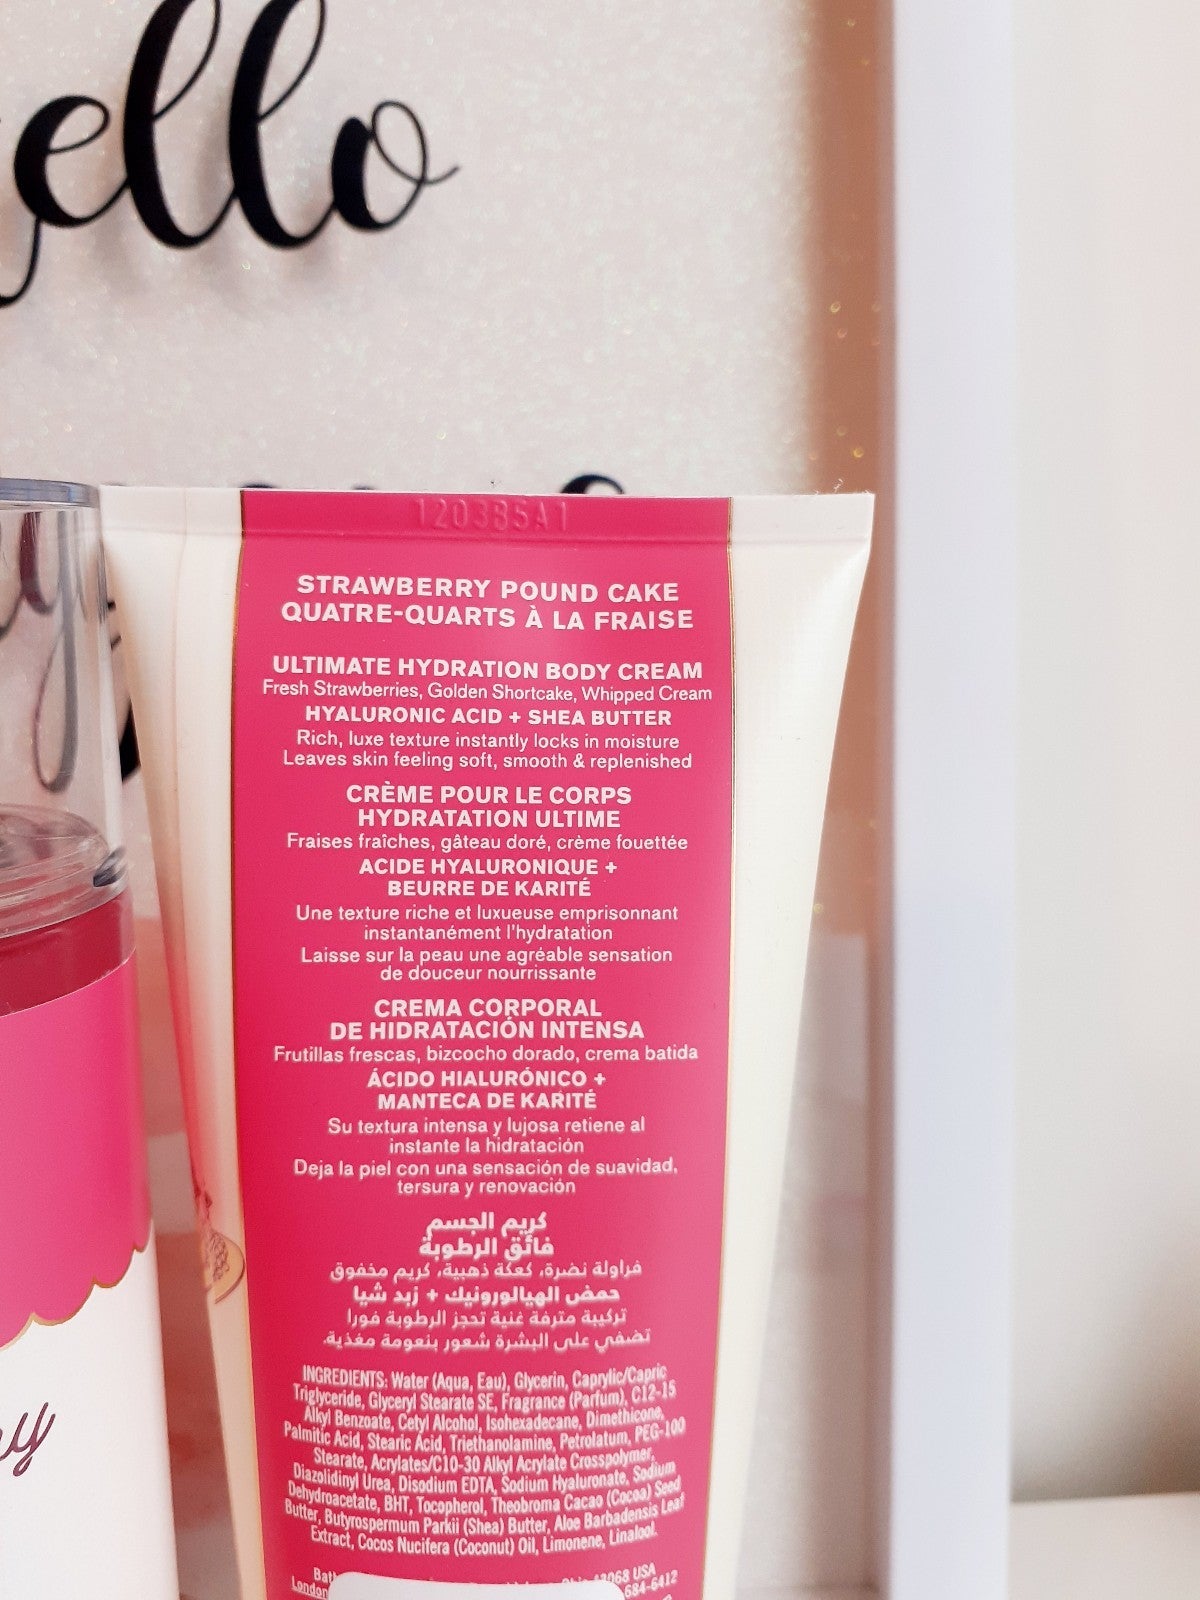 ello
1203B5A1
STRAWBERRY POUND CAKE
QUATRE-QUARTS À LA FRAISE
ULTIMATE HYDRATION BODY CREAM
Fresh Strawberries, Golden Shortcake, Whipped Cream
HYALURONIC ACID + SHEA BUTTER
Rich, luxe texture instantly locks in moisture
Leaves skin feeling soft, smooth & replenished
CRÈME POUR LE CORPS
HYDRATATION ULTIME
Fraises fraîches, gâteau doré, crème fouettée
ACIDE HYALURONIQUE +
BEURRE DE KARITÉ
Une texture riche et luxueuse emprisonnant
instantanément l'hydratation
Laisse sur la peau une agréable sensation
de douceur nourrissante
CREMA CORPORAL
DE HIDRATACIÓN INTENSA
Frutillas frescas, bizcocho dorado, crema batida
ÁCIDO HIALURÓNICO +
MANTECA DE KARITÉ
Su textura intensa y lujosa retiene al
instante la hidratación
Deja la piel con una sensación de suavidad,
tersura y renovación
كريم الجسم
فائق الرطوبة
فراولة نضرة، كعكة ذهبية، كريم مخفوق
حمض الهيالورونيك + زبد شيا
تركيبة مترفة غنية تحجز الرطوبة فورا
تضفي على البشرة شعور بنعومة مغذية.
INGREDIENTS: Water (Aqua, Eau), Glycerin, Caprylic/Capric
Triglyceride, Glyceryl Stearate SE, Fragrance (Parfum), C12-15
Alkyl Benzoate, Cetyl Alcohol, Isohexadecane, Dimethicone,
Palmitic Acid, Stearic Acid, Triethanolamine, Petrolatum, PEG-100
Stearate, Acrylates/C10-30 Alkyl Acrylate Crosspolymer,
Diazolidinyl Urea, Disodium EDTA, Sodium Hyaluronate, Sodium
Dehydroacetate, BHT, Tocopherol, Theobroma Cacao (Cocoa) Seed
Butter, Butyrospermum Parkii (Shea) Butter, Aloe Barbadensis Leaf
Extract, Cocos Nucifera (Coconut) Oil, Limonene, Linalool.
Bat 43068 USA
London 684-6412